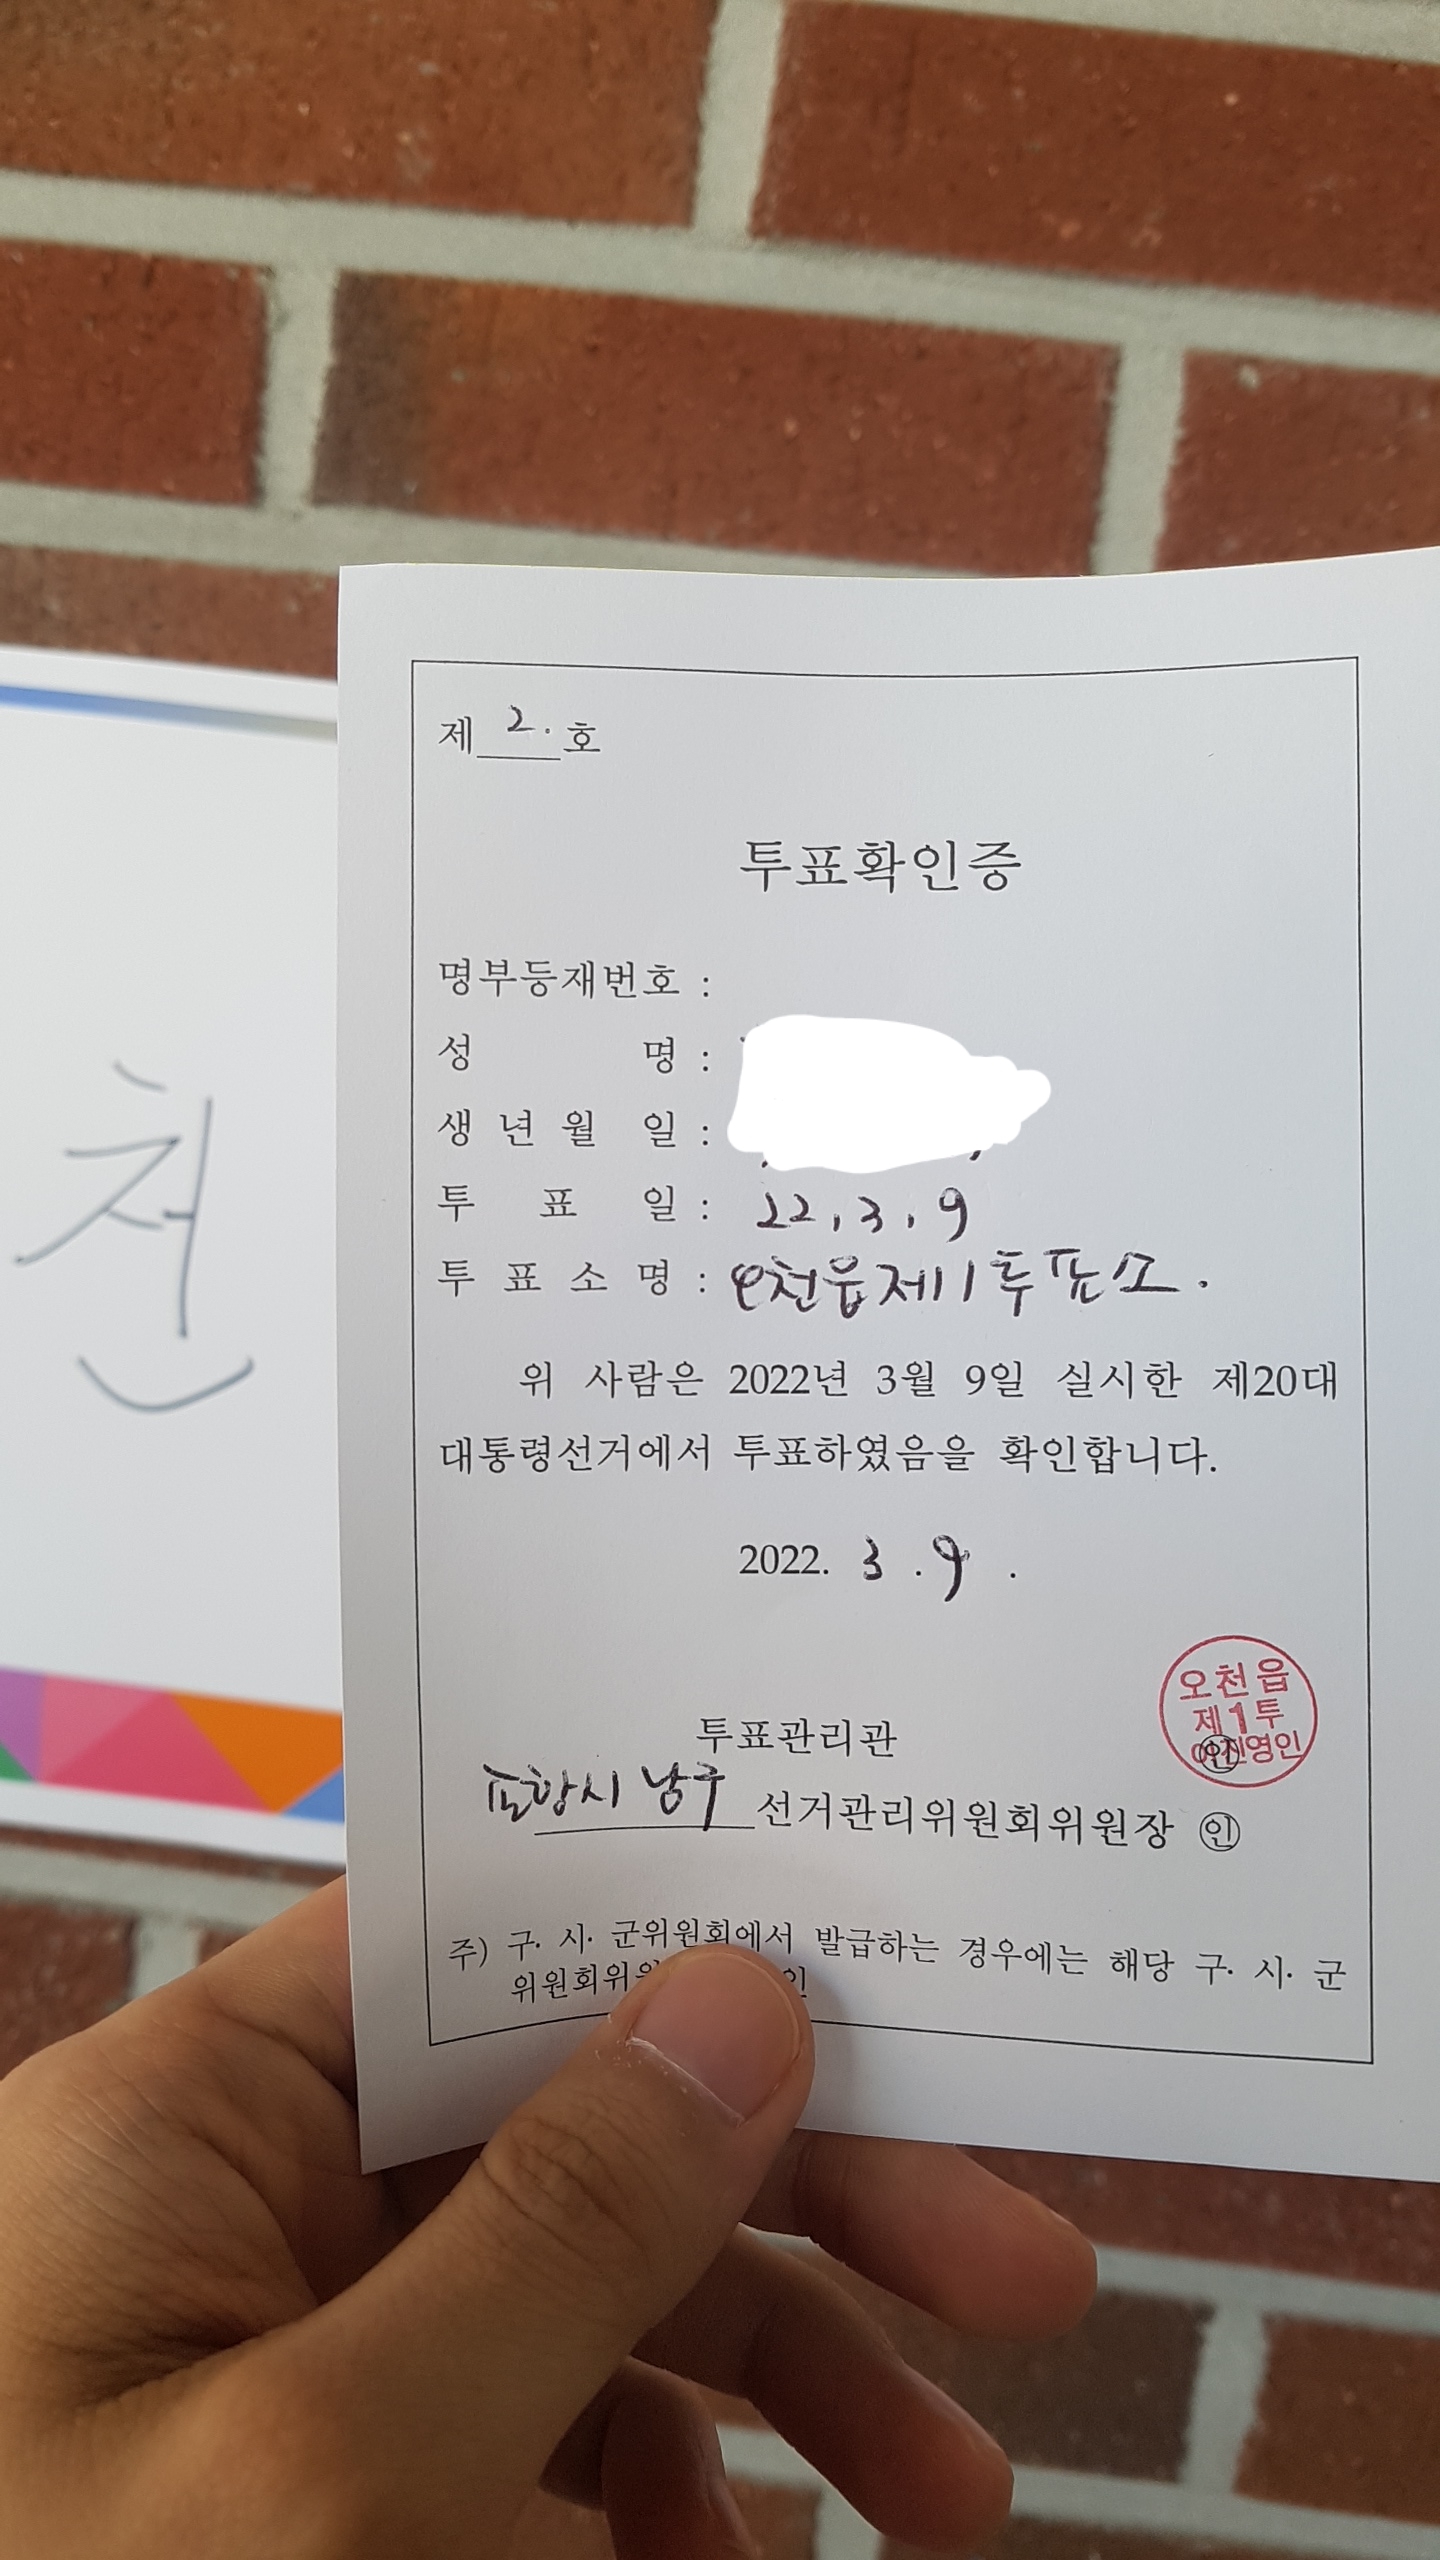 천
제 2. 호
투표확인증
명부등재번호 :
성 명 :
생 년 월 일 :
투 표 일 : 22. 3. 9
투 표 소 명 : 오천읍제1투표소.
위 사람은 2022년 3월 9일 실시한 제20대
대통령선거에서 투표하였음을 확인합니다.
2022. 3 . 9 .
오천읍
제1투
영인
투표관리관 ㊞
포항시 남구 선거관리위원회위원장 ㊞
주) 구· 시· 군위원회에서 발급하는 경우에는 해당 구· 시· 군
위원회위